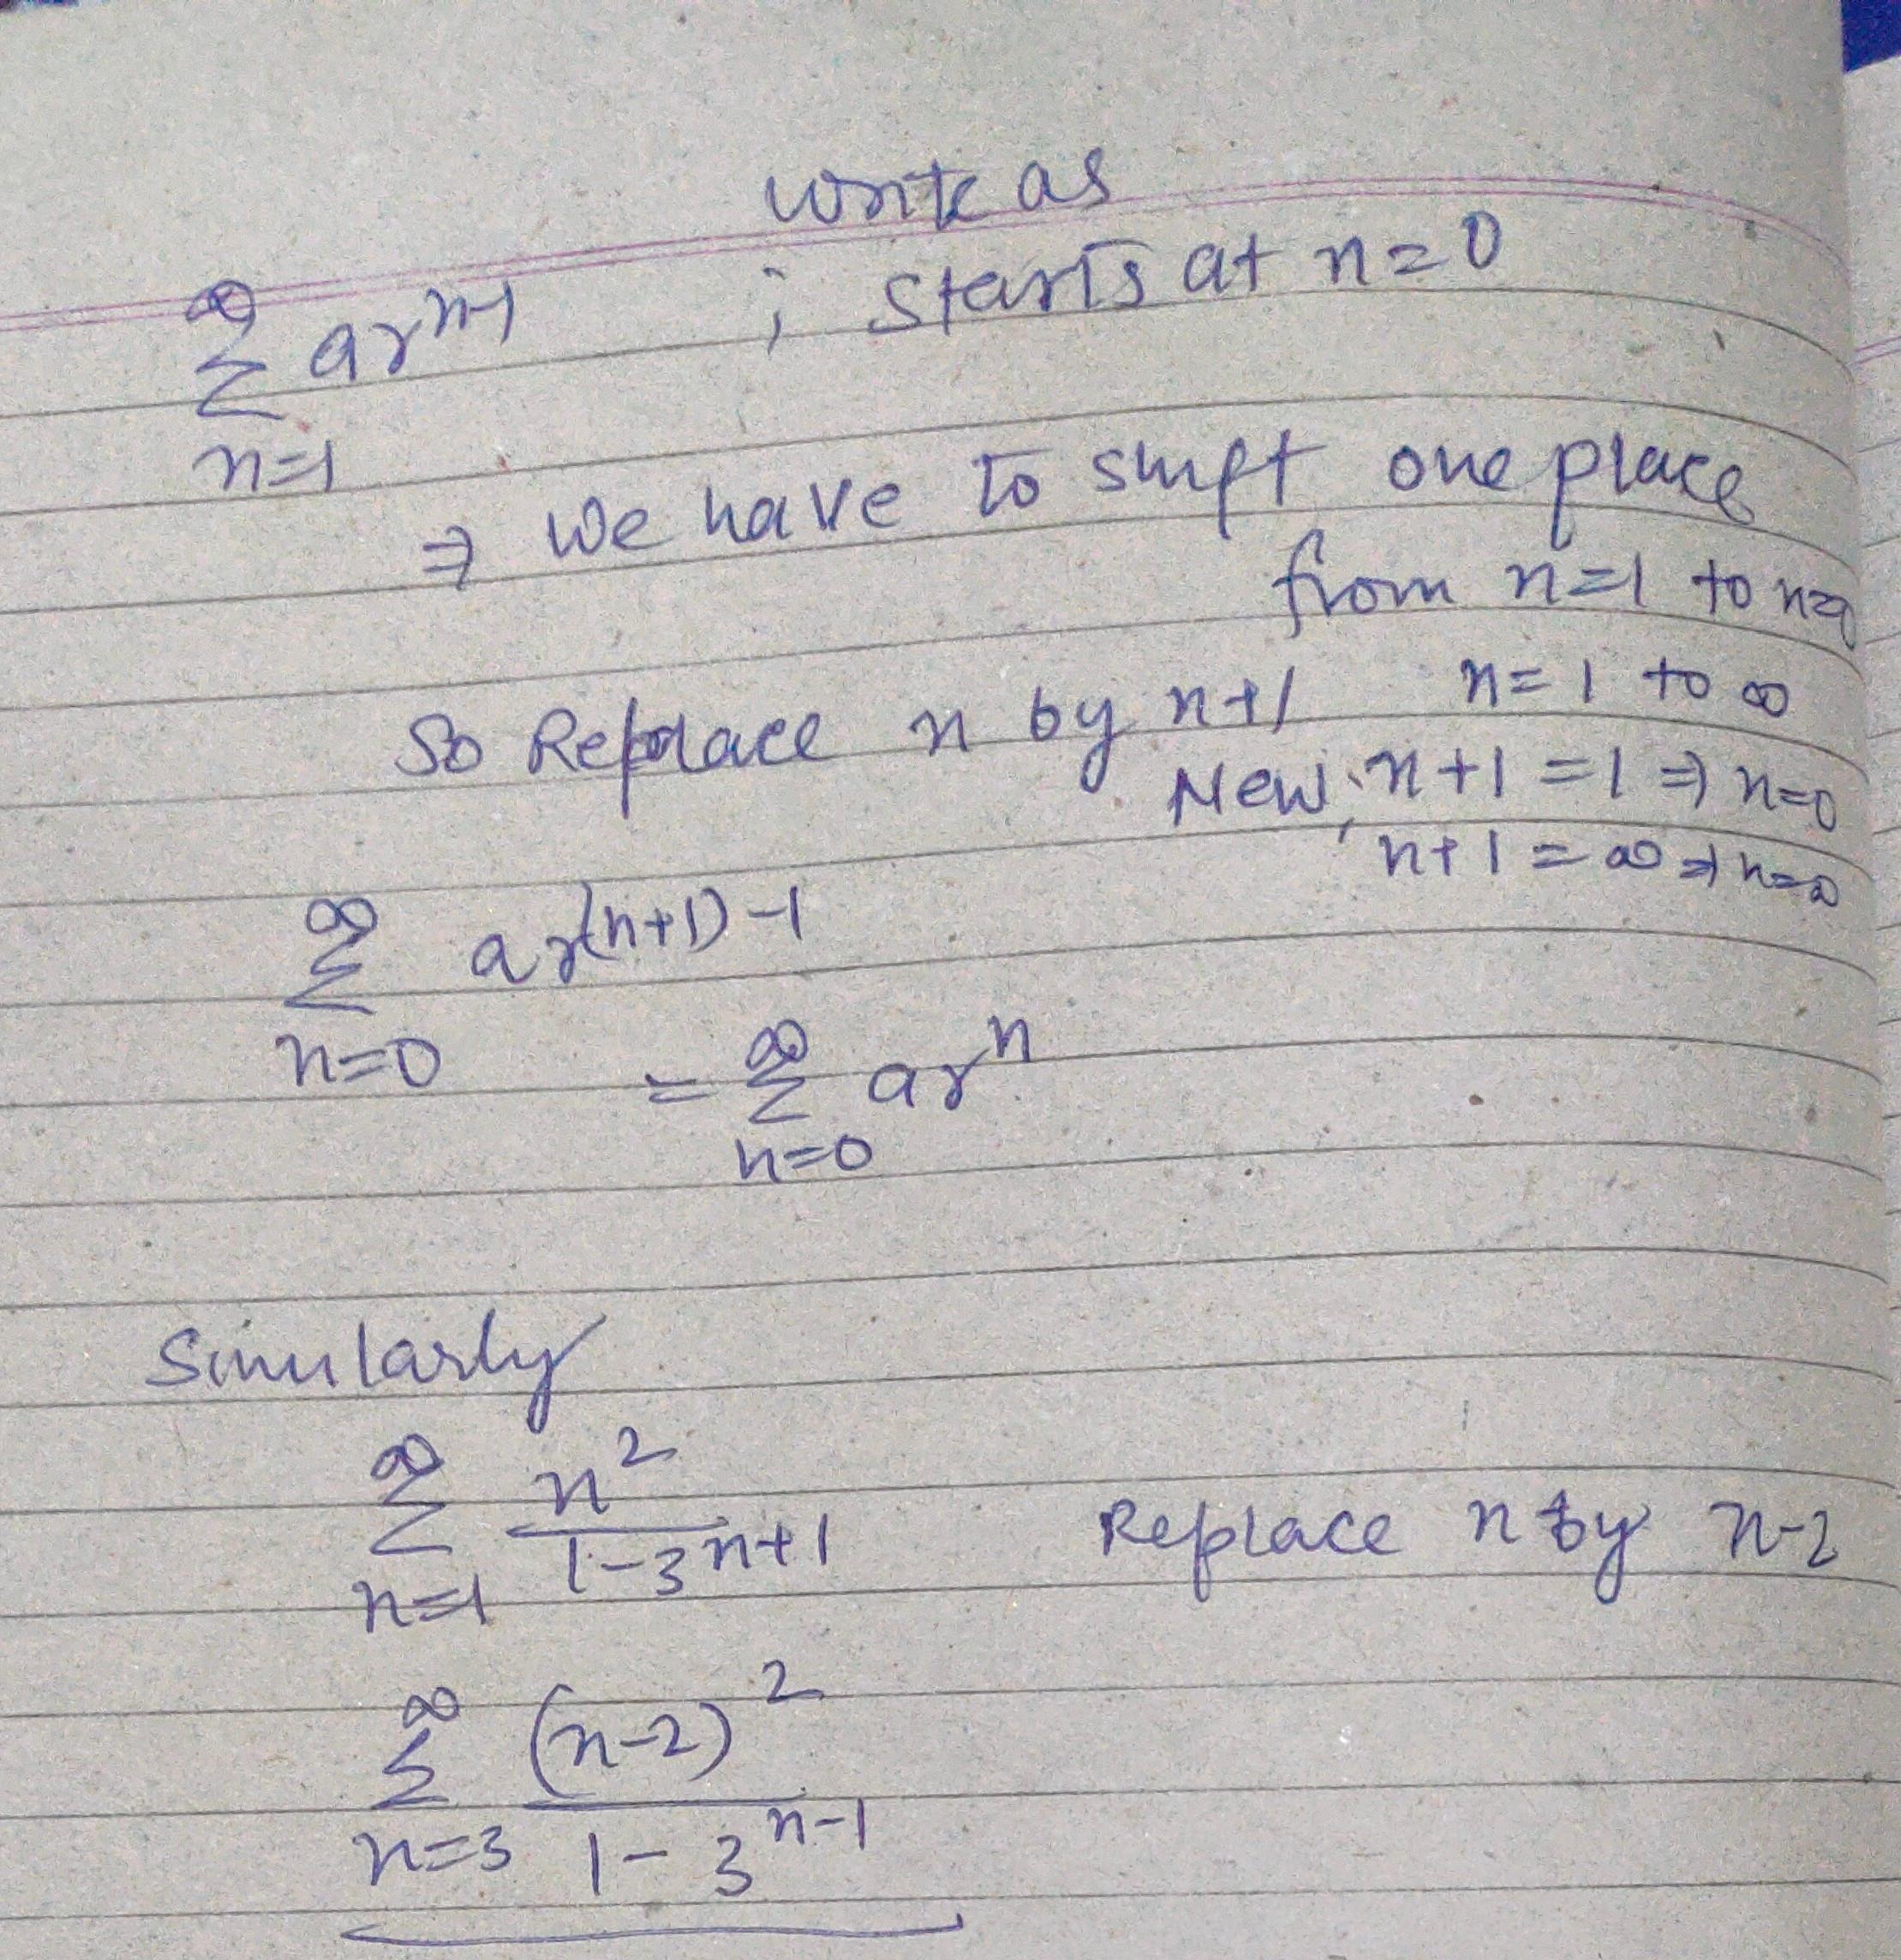 write as
∞
Σ ar^(n-1) ; starts at n=0
n=1
⇒ we have to shift one place
from n=1 to n=0
So Replace n by n+1 n=1 to ∞
New, n+1=1 ⇒ n=0
n+1=∞ ⇒ n=∞
∞
Σ ar^((n+1)-1)
n=0
∞
= Σ ar^n
n=0
Similarly
∞
Σ n^2 / (1-3^(n+1)) Replace n by n-2
n=1
∞
Σ (n-2)^2 / (1-3^(n-1))
n=3